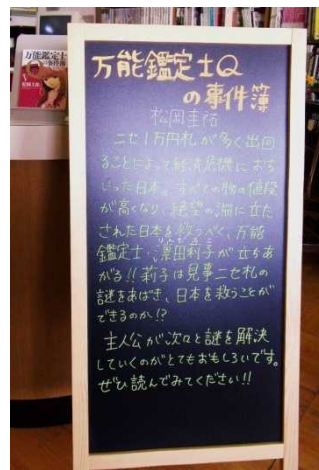 万能鑑定士Q
の事件簿
松岡圭祐
ニセ1万円札が多く出回
ることによって経済危機におち
いった日本。すべての物の値段
が高くなり、絶望の淵に立た
された日本を救うべく、万能
鑑定士・凜田莉子が立ちあ
がる!!莉子は見事ニセ札の
謎をあばき、日本を救うことが
できるのか!?
主人公が次々と謎を解決
していくのがとてもおもしろいです。
ぜひ読んでみてください!!
万能鑑定士Q
の事件簿